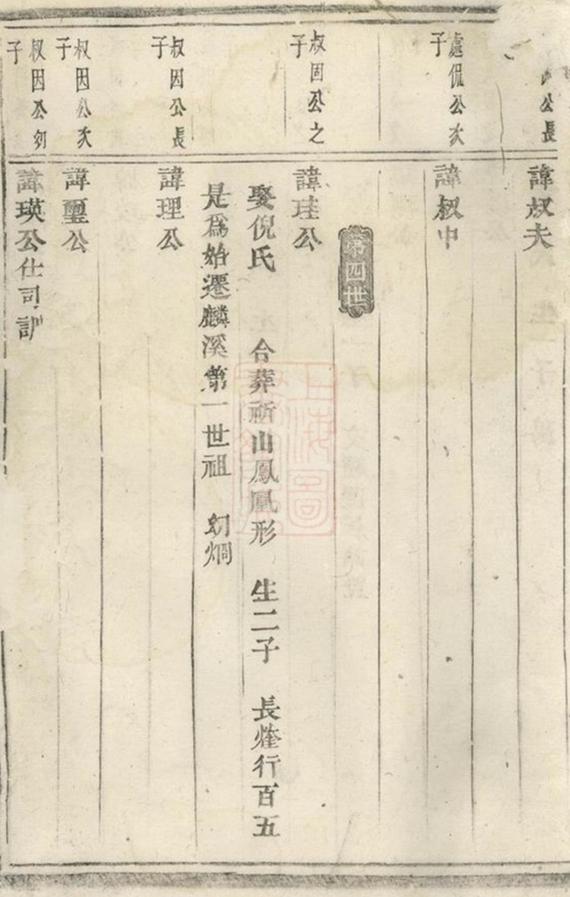 公長
諱叔夫
處侃公次子
諱叔中
第四世
叔因公之子
諱珪公
娶倪氏 合葬祈山鳳凰形 生二子 長㷭行百五
是爲始遷麟溪第一世祖 幼烱
叔因公長子
諱理公
叔因公次子
諱璽公
叔因公幼子
諱瑛公仕司訓